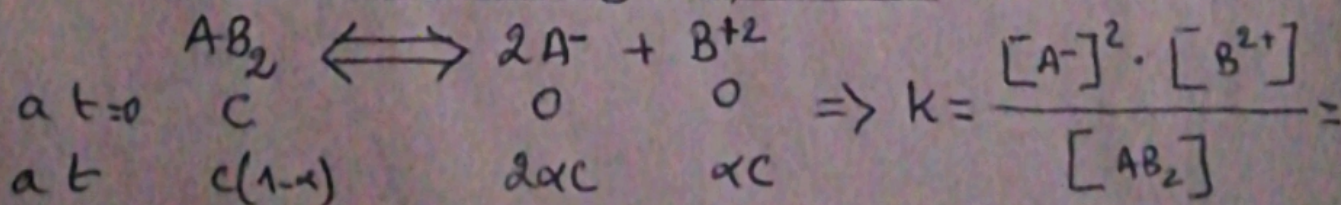 AB₂ ⟺ 2A⁻ + B⁺²
a t=0 C 0 0 => K = [A⁻]² · [B²⁺] / [AB₂] =
a t C(1-α) 2αC αC